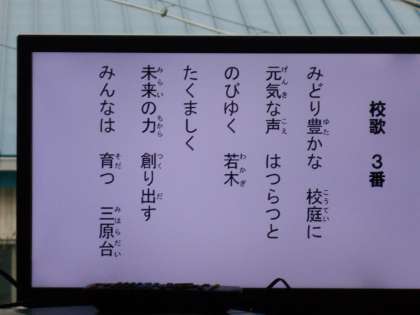 校歌 3番
みどり豊かな 校庭に
元気な声 はつらつと
のびゆく 若木
たくましく
未来の力 創り出す
みんなは 育つ 三原台